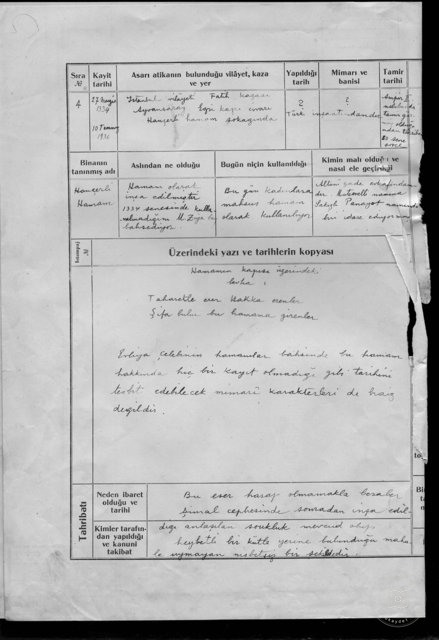 Sıra № Kayit tarihi Asarı atikanın bulunduğu vilâyet, kaza ve yer Yapıldığı tarih Mimarı ve banisi Tamir tarihi
4
1934
10 Temmuz 1936
İstanbul vilâyeti Fatih kazası
Ayvansaray Eğri kapı civarı
Hançerli hamam sokağında
?
Türk
?
inşaatındandır
Binanın tanınmış adı Aslından ne olduğu Bugün niçin kullanıldığı Kimin malı olduğu ve nasıl ele geçirildiği
Hançerli
Hamam
Hamam olarak
inşa edilmiştir
1334 senesinde
M. Ziya
bahsediyor
Bu gün kadınlara
mahsus hamam
olarak kullanılıyor
evkafından
dır. Mutevelli
Panayot namında
bir idare ediyor
№
Üzerindeki yazı ve tarihlerin kopyası
Hamamın kapısı üzerindeki
levha :
Taharetle erer Hakka erenler
Şifa bulur bu hamama girenler
Evliya Çelebinin hamamlar bahsinde bu hamam
hakkında hiç bir kayıt olmadığı gibi tarihini
tesbit edebilecek mimarî karakterleri de haiz
değildir.
Tahribatı
Neden ibaret olduğu ve tarihi
Kimler tarafından yapıldığı ve kanuni takibat
Bu eser harap olmamakla beraber
şimal cephesinde sonradan inşa edil-
diği anlaşılan soukluk mevcud olup
heybetli bir kütle yerine bulunduğu maha-
le uymayan nisbetsiz bir şekildedir.